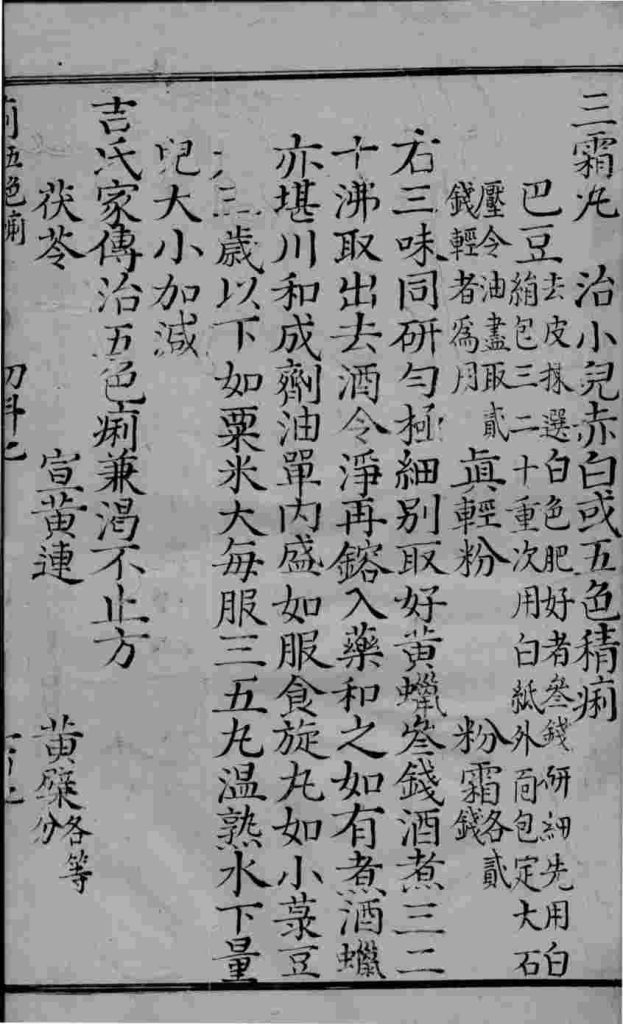 三霜丸　治小兒赤白或五色積痢
巴豆去皮揀選白色肥好者叁錢研細先用白
絹包三二十重次用白紙外面包定大石
壓令油盡取貳
錢輕者爲用　眞輕粉　粉霜各貳
錢
右三味同研勻極細別取好黃蠟叁錢酒煮三二
十沸取出去酒令淨再鎔入藥和之如有煮酒蠟
亦堪川和成劑油單內盛如服食旋丸如小菉豆
三歲以下如粟米大每服三五丸溫熟水下量
兒大小加減
吉氏家傳治五色痢兼渴不止方
茯苓　宣黃連　黃檗各等
分
五色痢